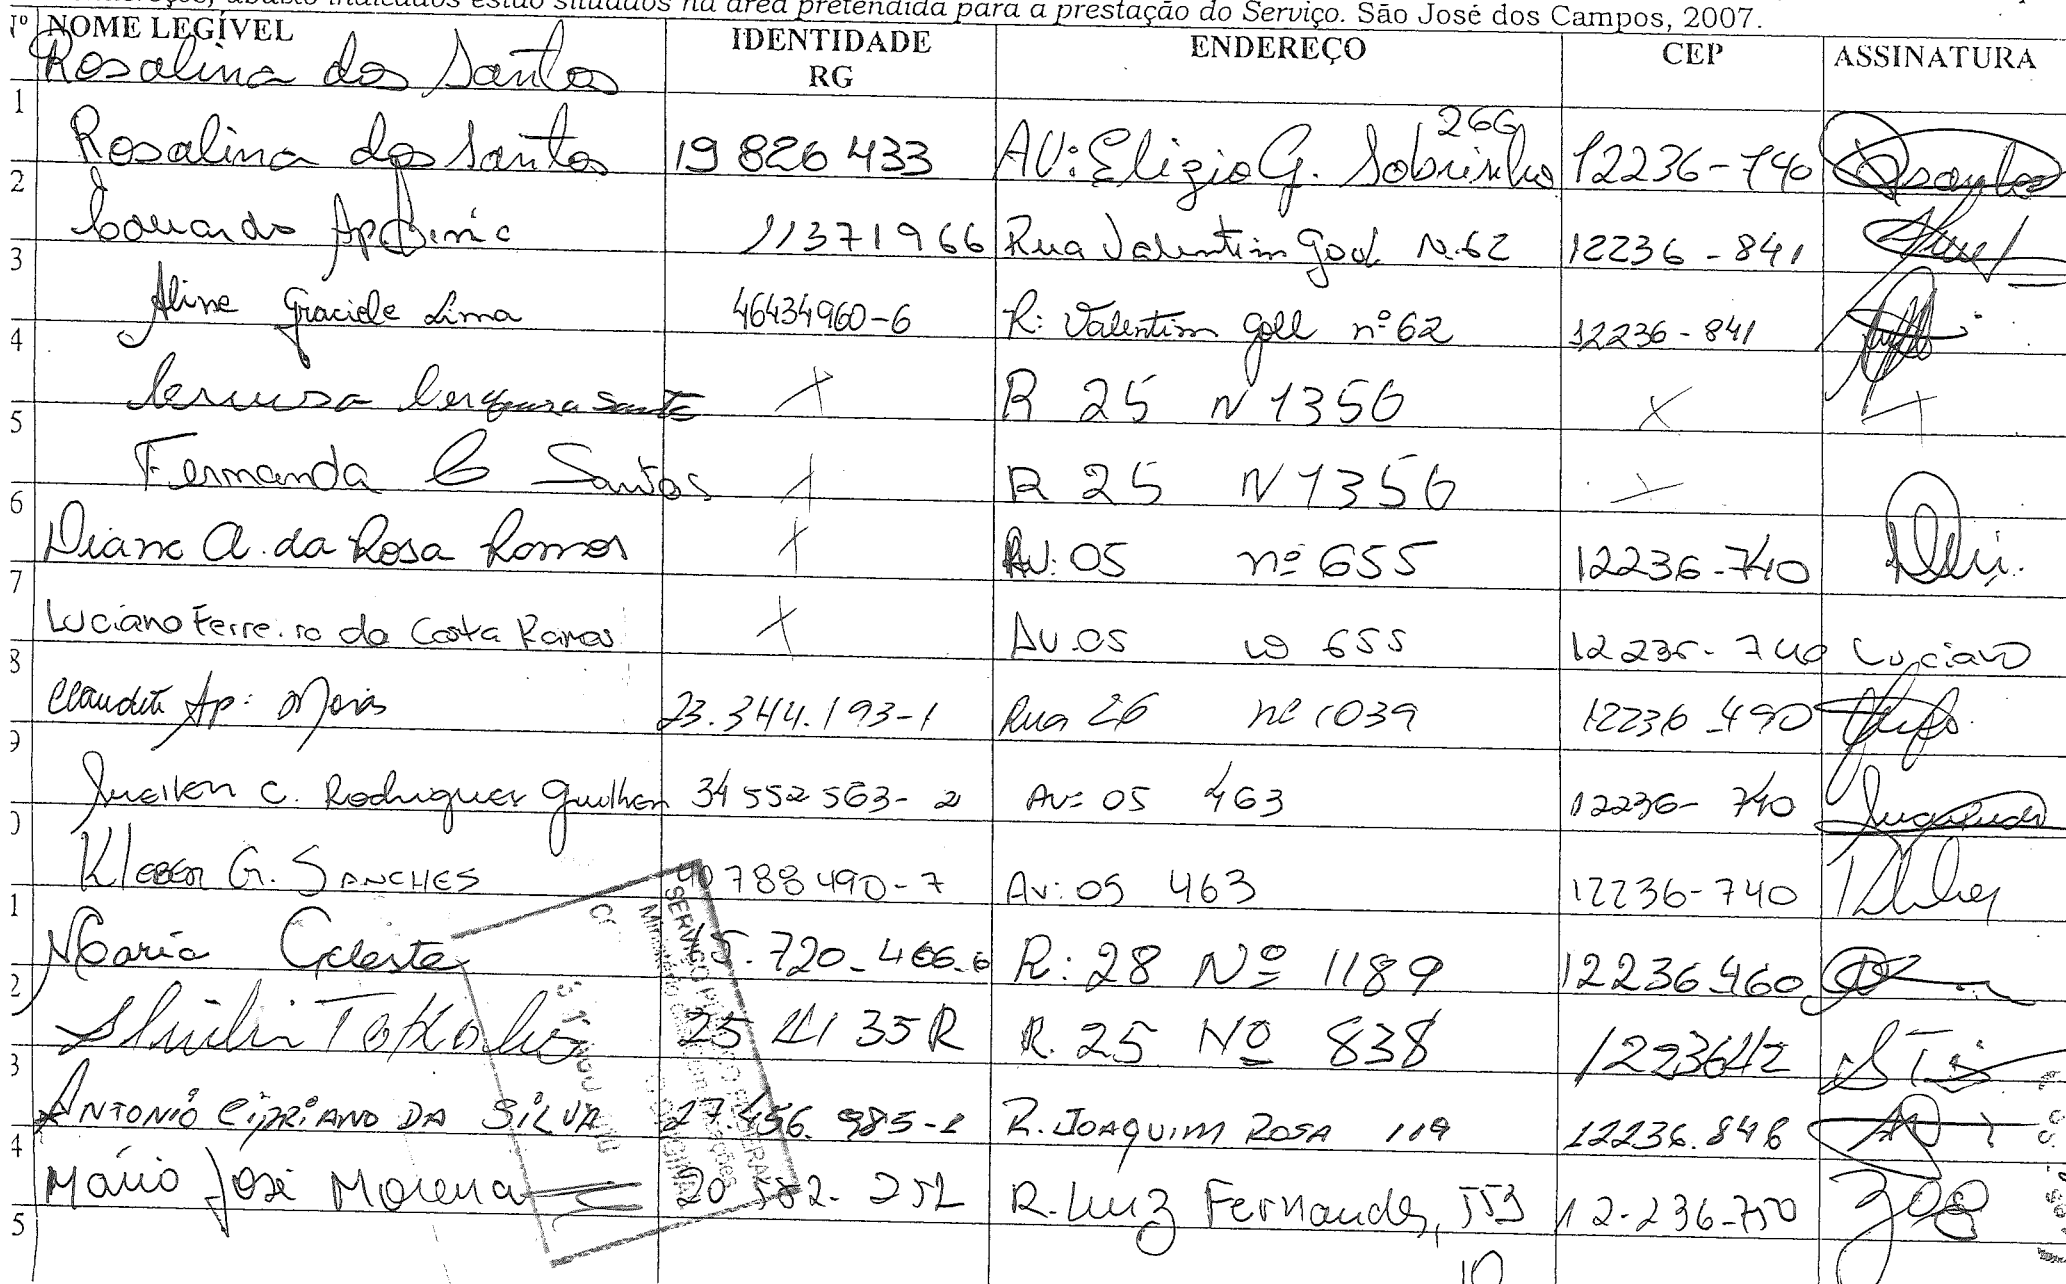 abaixo indicados estão situados na área pretendida para a prestação do Serviço. São José dos Campos, 2007.
Nº NOME LEGÍVEL IDENTIDADE RG ENDEREÇO CEP ASSINATURA
Rosalina dos Santos
1
Rosalina dos Santos 19 826 433 AV: Elizio G. Sobrinho 266 12236-740
2
11371966 Rua Valentim God N.62 12236-841
3
Aline Graciele Lima 46434960-6 R: Valentim Goll nº 62 12236-841
4
X R 25 N 1356 X X
5
Fernanda C Santos X R 25 N 1356 X
6
Diane A. da Rosa Ramos X AV: 05 nº 655 12236-740
7
Luciano Ferreira da Costa Ramos X AV. 05 655 12236-740 Luciano
8
Claudete Ap: 23.344.193-1 Rua 26 nº 1039 12236-490
9
C. Rodrigues Guilhen 34 552 563-2 Av: 05 463 12236-740
Kleber G. Sanches 40788490-7 Av: 05 463 12236-740
1
Maria Celeste 15.720.466-6 R: 28 Nº 1189 12236.460
2
25 35R R. 25 Nº 838
3
Antonio Cipriano da Silva 27.456.985-1 R. Joaquim Rosa 119 12236.846
4
Mário José Morena R. Luiz Fernandes, 553 12-236-750
5
10